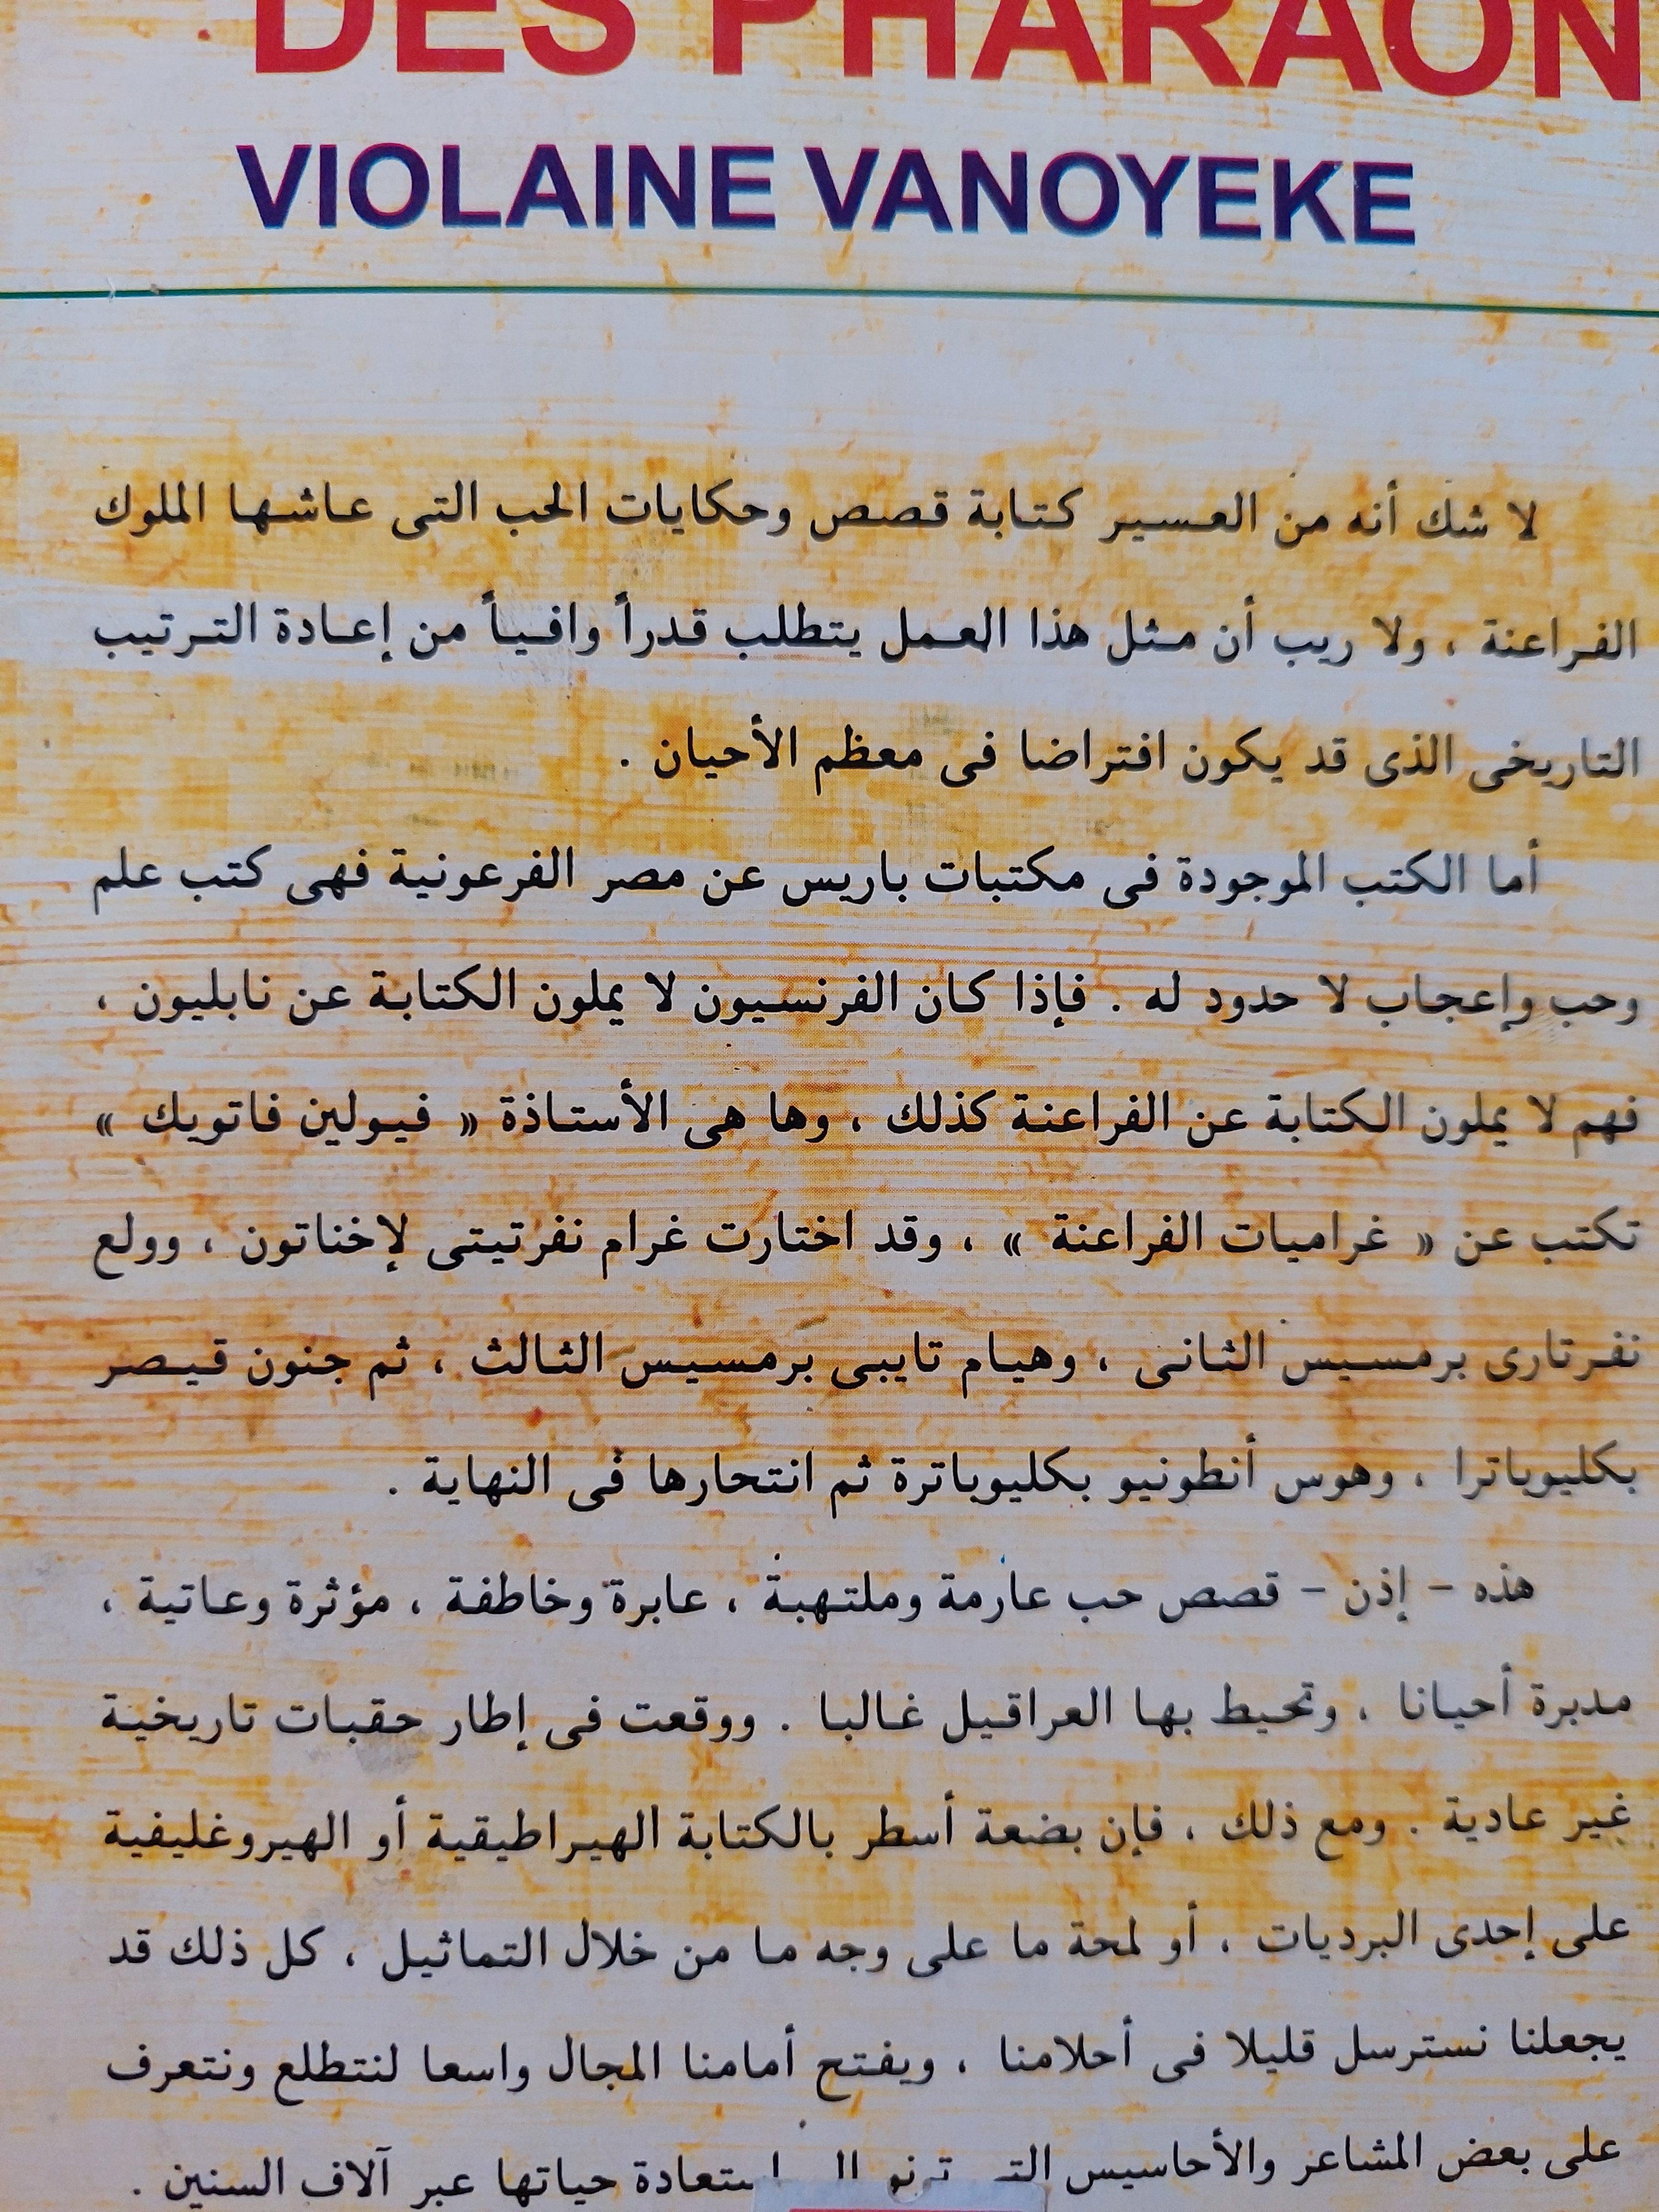 DES PHARAON
VIOLAINE VANOYEKE
لا شك أنه من العسير كتابة قصص وحكايات الحب التى عاشها الملوك
الفراعنة ، ولا ريب أن مثل هذا العمل يتطلب قدراً وافياً من إعادة الترتيب
التاريخى الذى قد يكون افتراضا فى معظم الأحيان .
أما الكتب الموجودة فى مكتبات باريس عن مصر الفرعونية فهى كتب علم
وحب وإعجاب لا حدود له . فإذا كان الفرنسيون لا يملون الكتابة عن نابليون ،
فهم لا يملون الكتابة عن الفراعنة كذلك ، وها هى الأستاذة « فيولين فاتويك »
تكتب عن « غراميات الفراعنة » ، وقد اختارت غرام نفرتيتى لإخناتون ، وولع
نفرتارى برمسيس الثانى ، وهيام تايبى برمسيس الثالث ، ثم جنون قيصر
بكليوباترا ، وهوس أنطونيو بكليوباترة ثم انتحارها فى النهاية .
هذه - إذن - قصص حب عارمة وملتهبة ، عابرة وخاطفة ، مؤثرة وعاتية ،
مدبرة أحيانا ، وتحيط بها العراقيل غالبا . ووقعت فى إطار حقبات تاريخية
غير عادية . ومع ذلك ، فإن بضعة أسطر بالكتابة الهيراطيقية أو الهيروغليفية
على إحدى البرديات ، أو لمحة ما على وجه ما من خلال التماثيل ، كل ذلك قد
يجعلنا نسترسل قليلا فى أحلامنا ، ويفتح أمامنا المجال واسعا لنتطلع ونتعرف
على بعض المشاعر والأحاسيس حياتها عبر آلاف السنين .